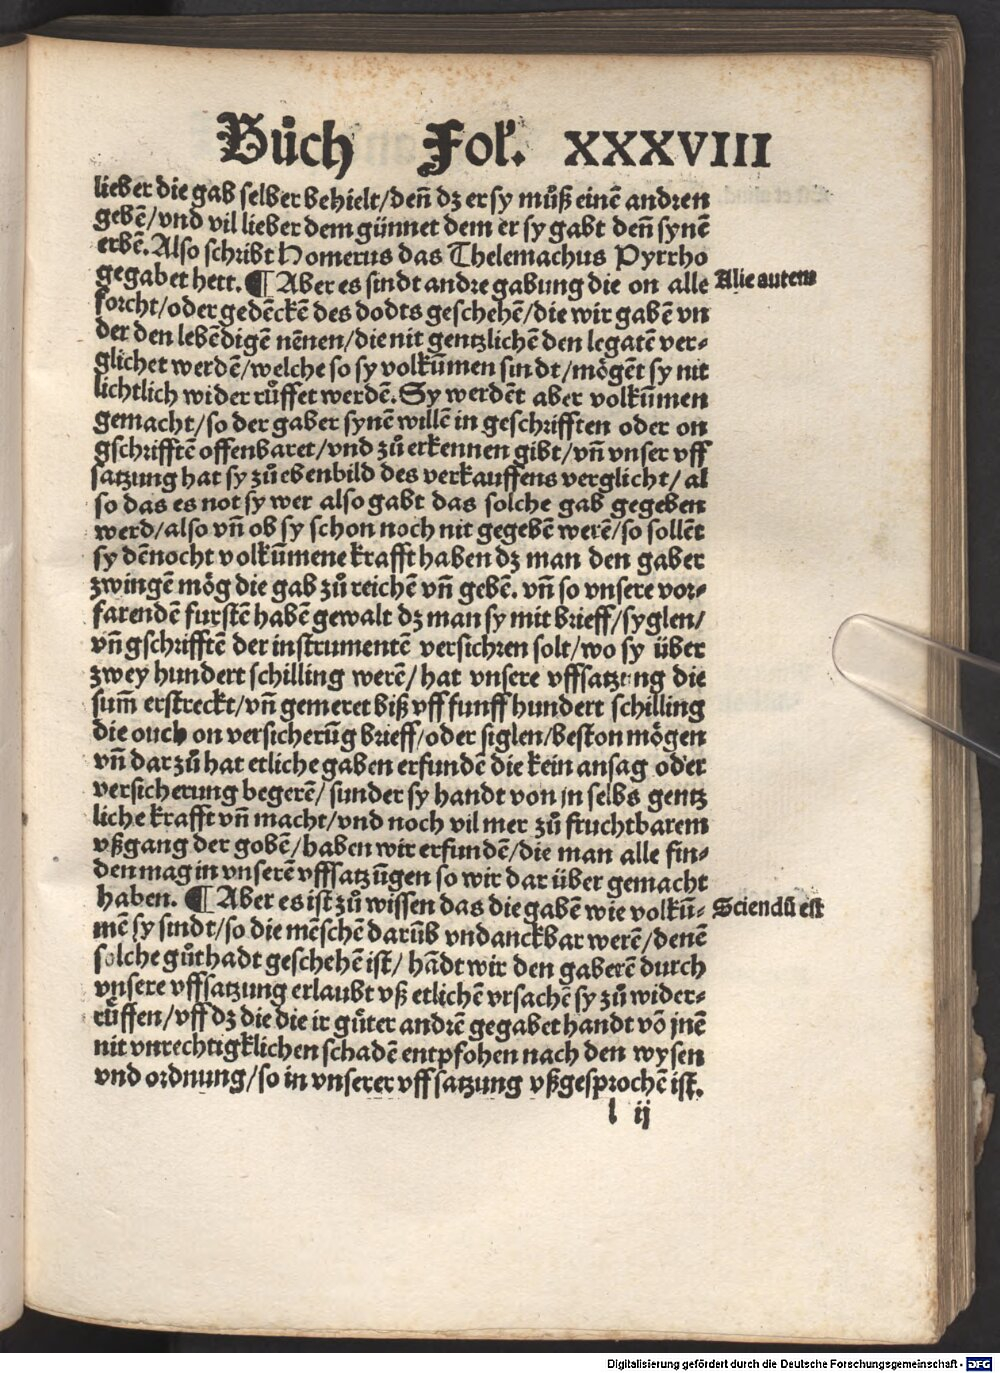 Bůch Fol. XXXVIII
lieber die gab selber behielt/deñ dz er sy můß einē andren
gebē/vnd vil lieber dem günnet dem er sy gabt deñ synē
erbē. Also schribt Homerus das Thelemachus Pyrrho
gegabet hett. ¶ Aber es sindt andre gabung die on alle
Alie autem
forcht/oder gedēckē des dodts geschehē/die wir gabē vn
der den lebēdigē nēnen/die nit gentzlichē den legatē ver⸗
glichet werdē/welche so sy volkūmen sindt/mögēt sy nit
lichtlich wider růffet werdē. Sy werdēt aber volkūmen
gemacht/so der gaber synē willē in geschrifften oder on
gschrifftē offenbaret/vnd zů erkennen gibt/vñ vnser vff
satzung hat sy zů ebenbild des verkauffens verglicht/al
so das es not sy wer also gabt das solche gab gegeben
werd/also vñ ob sy schon noch nit gegebē werē/so sollēt
sy dēnocht volkūmene krafft haben dz man den gaber
zwingē mög die gab zů reichē vñ gebē. vñ so vnsere vor⸗
farendē furstē habē gewalt dz man sy mit brieff/syglen/
vñ gschrifftē der instrumentē versichren solt/wo sy über
zwey hundert schilling werē/hat vnsere vffsatzung die
sum̃ erstreckt/vñ gemeret biß vff funff hundert schilling
die ouch on versicherūg brieff/oder siglen/beston mögen
vñ darzů hat etliche gaben erfundē die kein ansag oder
versicherung begerē/sunder sy handt von jn selbs gentz
liche krafft vñ macht/vnd noch vil mer zů fruchtbarem
vßgang der gobē/haben wir erfundē/die man alle fin⸗
den mag in vnserē vffsatzūgen so wir dar über gemacht
haben. ¶ Aber es ist zů wissen das die gabē wie volkū⸗
Sciendū est
mē sy sindt/so die mēschē darūb vndanckbar werē/denē
solche gůthadt geschehē ist/hādt wir den gaberē durch
vnsere vffsatzung erlaubt vß etlichē vrsachē sy zů wider⸗
růffen/vff dz die die ir gůter andrē gegabet handt vō jnē
nit vnrechtigklichen schadē entpfohen nach den wysen
vnd ordnung/so in vnserer vffsatzung vßgesprochē ist.
l ij
Digitalisierung gefördert durch die Deutsche Forschungsgemeinschaft - DFG